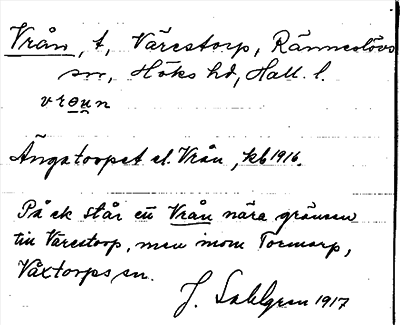 Vrån, t, Värestorp, Ränneslövs
sn, Höks hd, Hall. l.
vrɵu̯n
Ängstorpet el. Vrån, kb 1916.
På ek står ett Vrån nära gränsen
till Värestorp, men inom Tormarp,
Våxtorps sn.
J. Sahlgren 1917